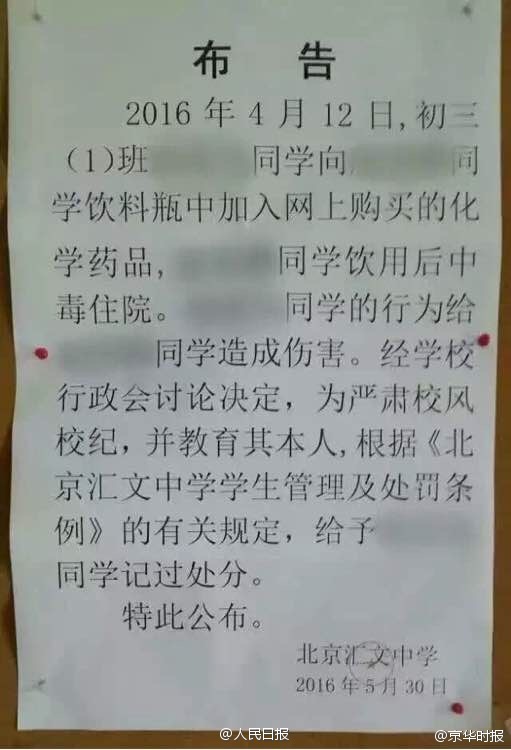 布 告
2016 年 4 月 12 日,初三
(1)班 同学向 同
学饮料瓶中加入网上购买的化
学药品, 同学饮用后中
毒住院。 同学的行为给
同学造成伤害。经学校
行政会讨论决定，为严肃校风
校纪，并教育其本人,根据《北
京汇文中学学生管理及处罚条
例》的有关规定，给予
同学记过处分。
特此公布。
北京汇文中学
2016 年 5 月 30 日
@人民日报
@京华时报